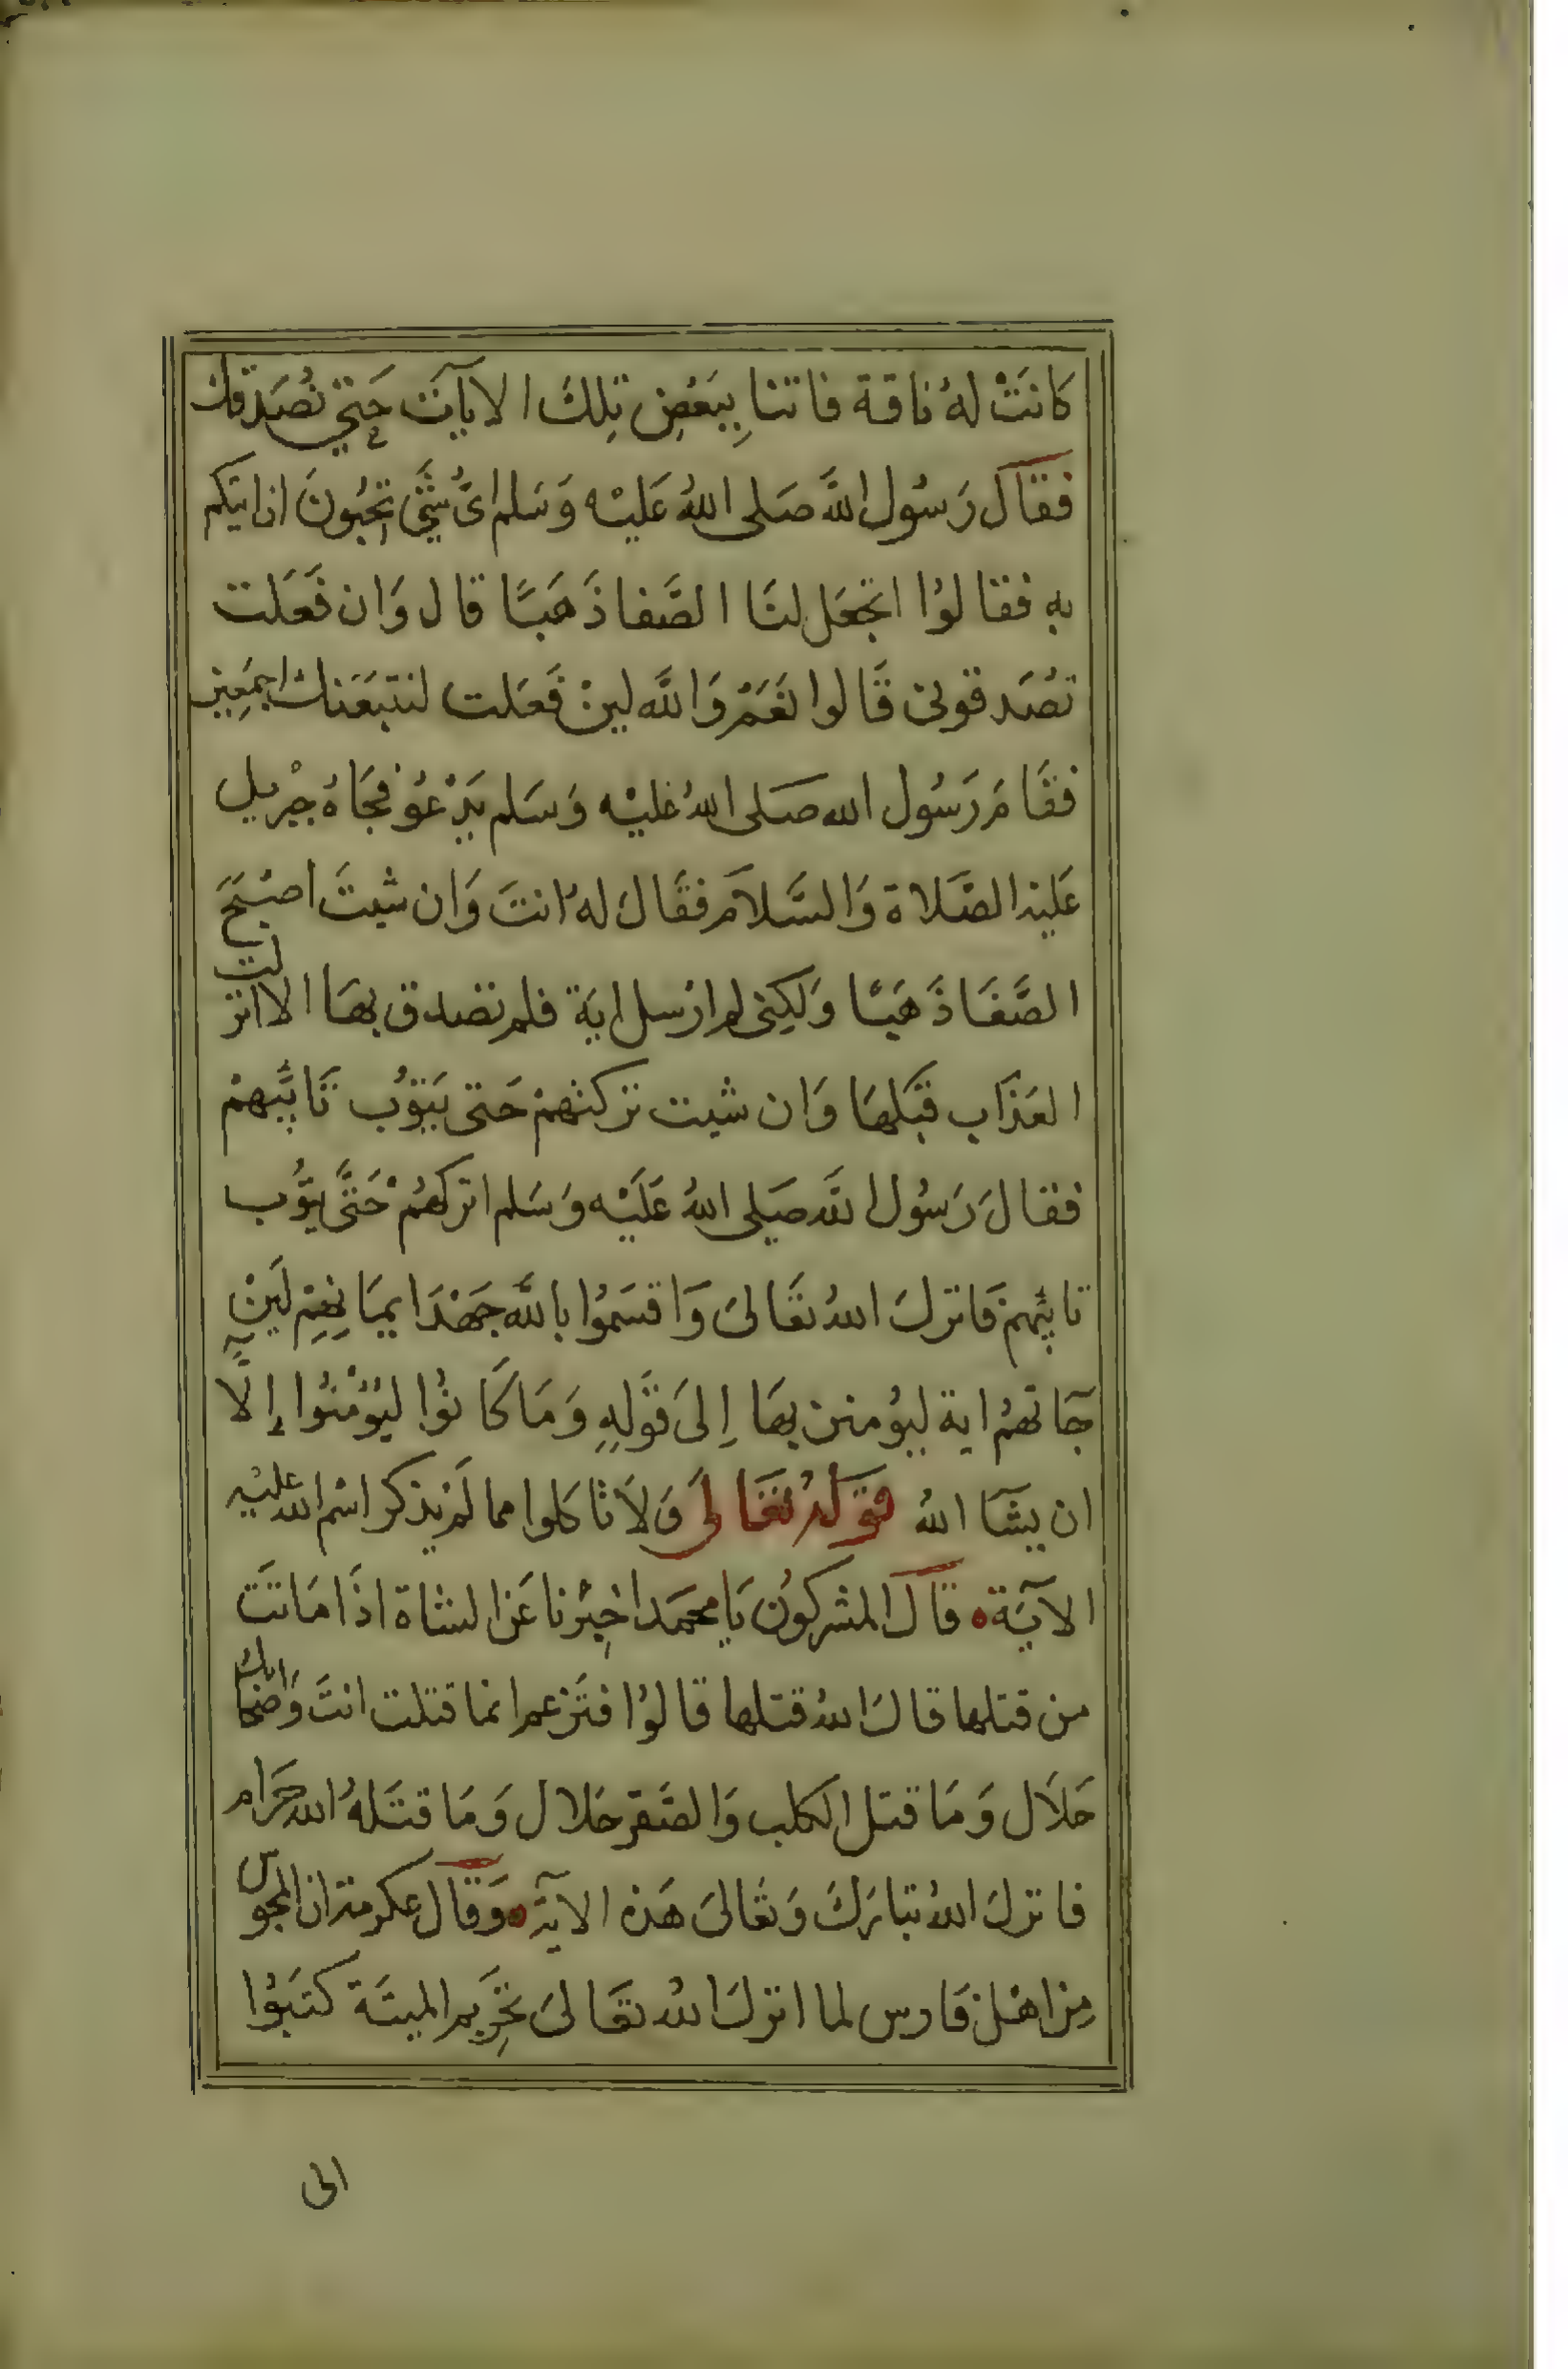 كَانَتْ لهُ نَاقة فاتنا بِبَعْضِ تِلكَ الايَآتِ حَتي نُصَدقك
فقالَ رَسُول اللَّه صَلى اللهُ عَليْه وَسَلم ايُّ شَيٍّ تحِبُونَ ان اتيكم
به فقالوُا اتجْعَل لنَا الصَّفا ذَهَبًا قال وَان فَعَلت
تصَدقونى قَالوا نَعَمْ وَاللَّه لينْ فَعَلت لنتبَعَنك اجمَعِين
فقَامَ رَسُول الله صَلى اللهُ عَليْه وَسَلم يَدْعُو فجَاهُ جبْريل
عَليْه الصَّلاة وَالسَّلامَ فقَالَ لهُ انتَ وَان شيتَ اصْبَحَ
الصَّفَا ذَهَبًا وَلكِنى لم ارْسل ايَة فلم تصَدق بهَا الا انزلت
العَذَاب قبَلهَا وَان شيت تركتهمْ حَتى يَتوُب تَايَّبهمْ
فقالَ رَسُول اللَّه صَلى اللهُ عَلَيْه وَسَلم اتركهُمْ حَتَّى يتُوب
تايبُهمْ فَانزلَ اللهُ تعَالىَ وَاقسَمُوا باللَّه جَهْدَ ايمَانِهِم لَينْ
جآتهمُ اية ليوُمنن بهَا اِلىَ قَولِهِ وَمَا كَانوُا ليُوْمِنُوا اِلَّآ
ان يشَآ اللهُ قوَلهُ تعَالىَ وَلاَ تَاكلوا مما لَمْ يذكر اسْم الله عليْه
الآيَة ه قالَ المشركوُن يَا محمَد اخِبرْنا عَن الشاة اذَا مَاتَتَ
من قتلها قالَ اللهُ قتلها قالوُا فتَزعم انما قتلت انتَ وَاصْحَابك
حَلاَل وَمَا قتل الكلب وَالصَقر حَلال وَمَا قتَلهُ الله حَرَام
فانزلَ اللهُ تبارَكَ وَتعَالىَ هَذه الآية ه وَقَالَ عكرمة ان المجوس
مِن اهْل فَارس لما انزلَ اللهُ تعَالىَ تحْرِيم الميتَة كتَبوُا
الى